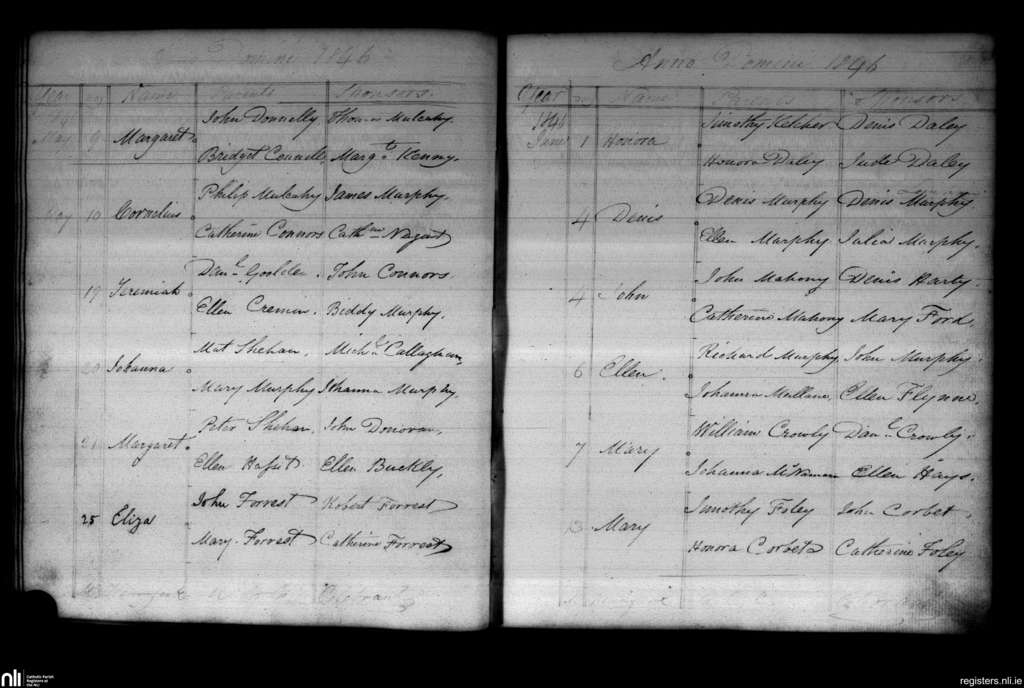 Anno Domini 1846
Year Name Parents Sponsors.
May 9 Margaret John Donnelly Thomas Mulcahy
Bridget Connell Margt. Kenny.
May 10 Cornelius Philip Mulcahy James Murphy.
Catherine Connors Cathne Nagent
19 Jeremiah Danl. Goolden. John Connors
Ellen Cremin. Biddy Murphy.
20 Johanna Mat Shehan. Michl. Callaghan
Mary Murphy Johanna Murphy
21 Margaret Peter Shehan. John Donovan.
Ellen Ellen Buckley.
25 Eliza John Forrest Robert Forrest
Mary Forrest Catherine Forrest
Anno Domini 1846
Year Name Parents Sponsors
1846
June 1 Honora Timothy Keleher Denis Daley
Honora Daley Jude Daley
4 Denis Denis Murphy Denis Murphy
Ellen Murphy Julia Murphy.
4 John John Mahony Denis Harty.
Catherine Mahony Mary Ford.
6 Ellen. Richard Murphy John Murphy.
Johanna Mullane. Ellen Flynne.
7 Mary William Crowly Danl. Crowly.
Johanna Ellen Hays.
13 Mary Timothy Foley John Corbet.
Honora Corbet Catherine Foley
nli Catholic Parish Registers at the NLI
registers.nli.ie